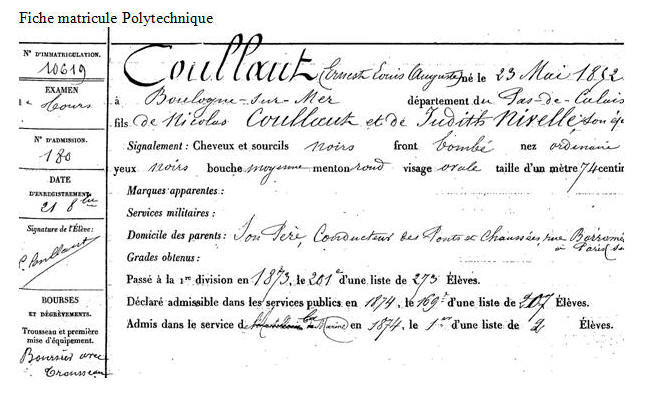 Fiche matricule Polytechnique
N° D'IMMATRICULATION.
10619
EXAMEN
Cours
N° D'ADMISSION.
180
DATE
D'ENREGISTREMENT.
21 8bre
Signature de l'Élève:
Coullaut
BOURSES
ET DÉGRÈVEMENTS.
Trousseau et première
mise d'équipement.
Boursier avec
Trousseau
Coullaut (Ernest Louis Auguste) né le 23 Mai 1852
à Boulogne-sur-Mer département du Pas-de-Calais
fils de Nicolas Coullaut et de Judith Nivelle son
Signalement: Cheveux et sourcils noirs front bombé nez ordinaire
yeux noirs bouche moyenne menton rond visage ovale taille d'un mètre 74 centi
Marques apparentes:
Services militaires:
Domicile des parents: Son Père, Conducteur des Ponts et Chaussées, rue
à Paris
Grades obtenus:
Passé à la 1re division en 1873, le 201e d'une liste de 273 Élèves.
Déclaré admissible dans les services publics en 1874, le 169e d'une liste de 207 Élèves.
Admis dans le service de Marine en 1874, le 1er d'une liste de 2 Élèves.